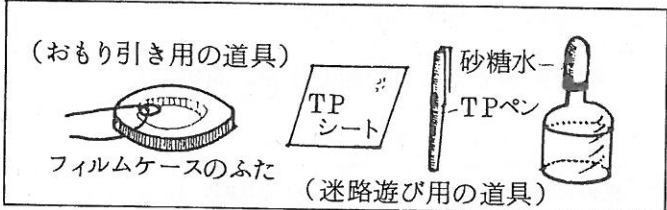 (おもり引き用の道具)
フィルムケースのふた
TP
シート
砂糖水
TPペン
(迷路遊び用の道具)